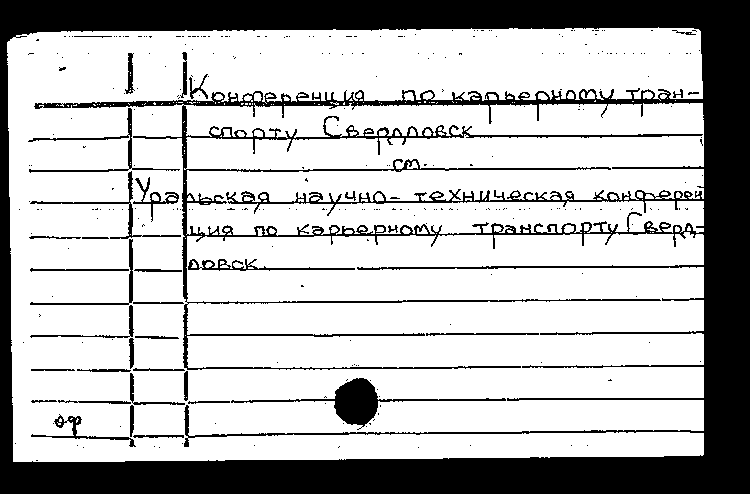 Конференция по карьерному тран-
спорту Свердловск
см.
Уральская научно-техническая конферен
ция по карьерному транспорту Сверд-
ловск.
оф